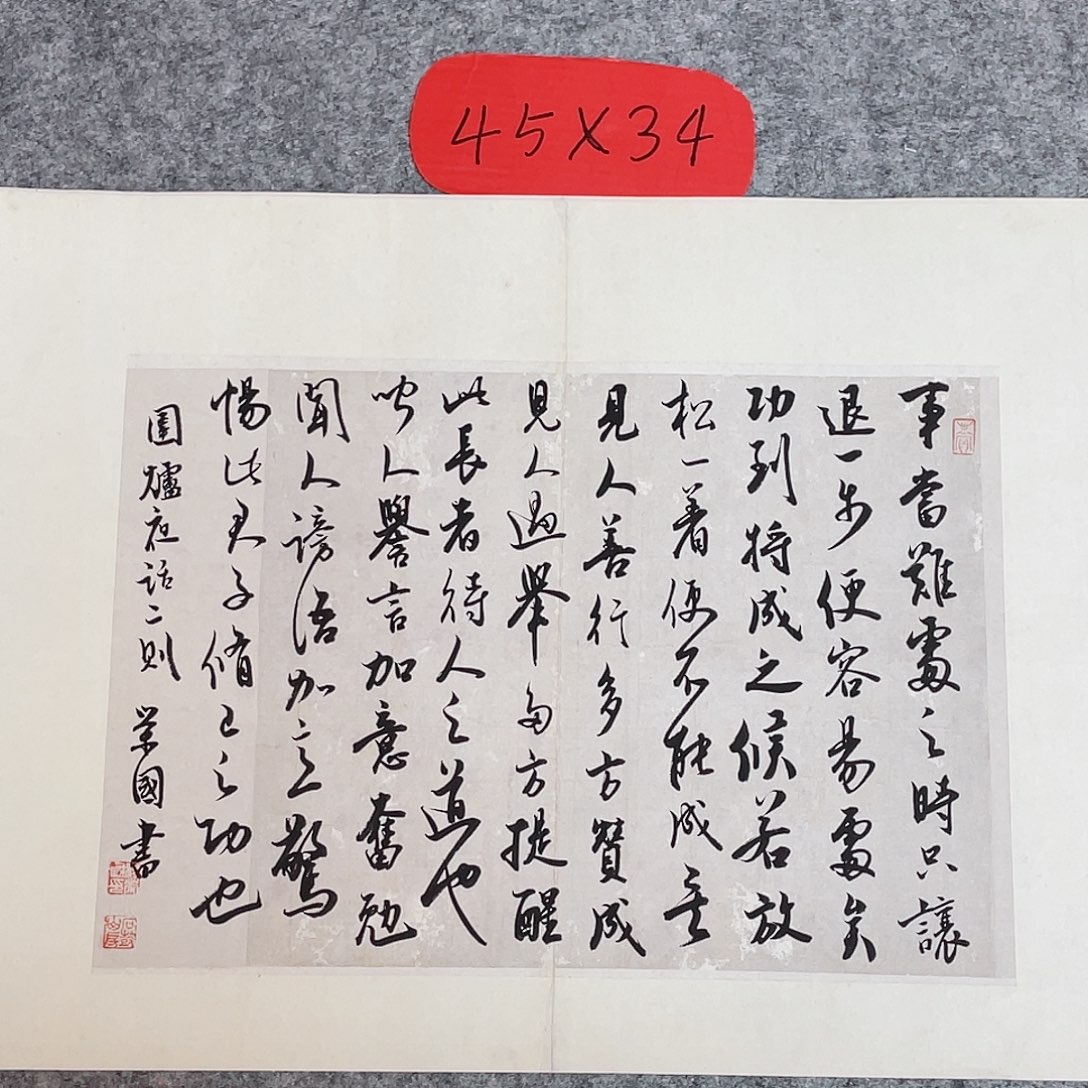 45X34
事當難處之時只讓
退一步便容易處矣
功到將成之候若放
松一着便不能成矣
見人善行多方贊成
見人過舉多方提醒
此長者待人之道也
聞人譽言加意奮勉
聞人謗語加意警
惕此君子脩己之功也
圍爐夜話二則 榮國書